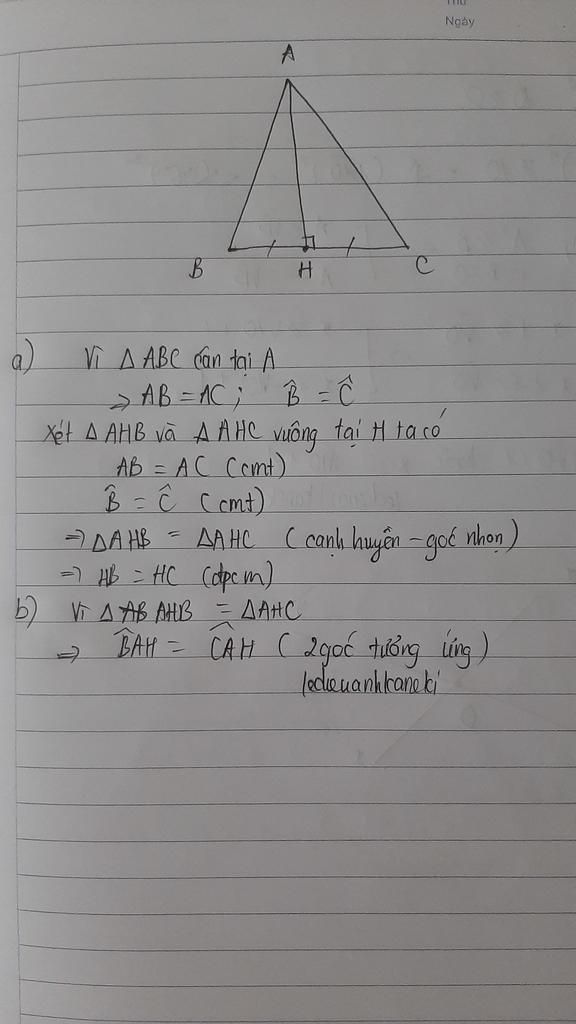 Thứ
Ngày
A
B H C
a) Vì ΔABC cân tại A
=> AB = AC ; B̂ = Ĉ
Xét ΔAHB và ΔAHC vuông tại H ta có
AB = AC (cmt)
B̂ = Ĉ (cmt)
=> ΔAHB = ΔAHC (cạnh huyền - góc nhọn)
=> HB = HC (đpcm)
b) Vì Δ AHB = ΔAHC
=> B̂AH = ĈAH ( 2 góc tưởng ứng )
ledieuanhkaneki